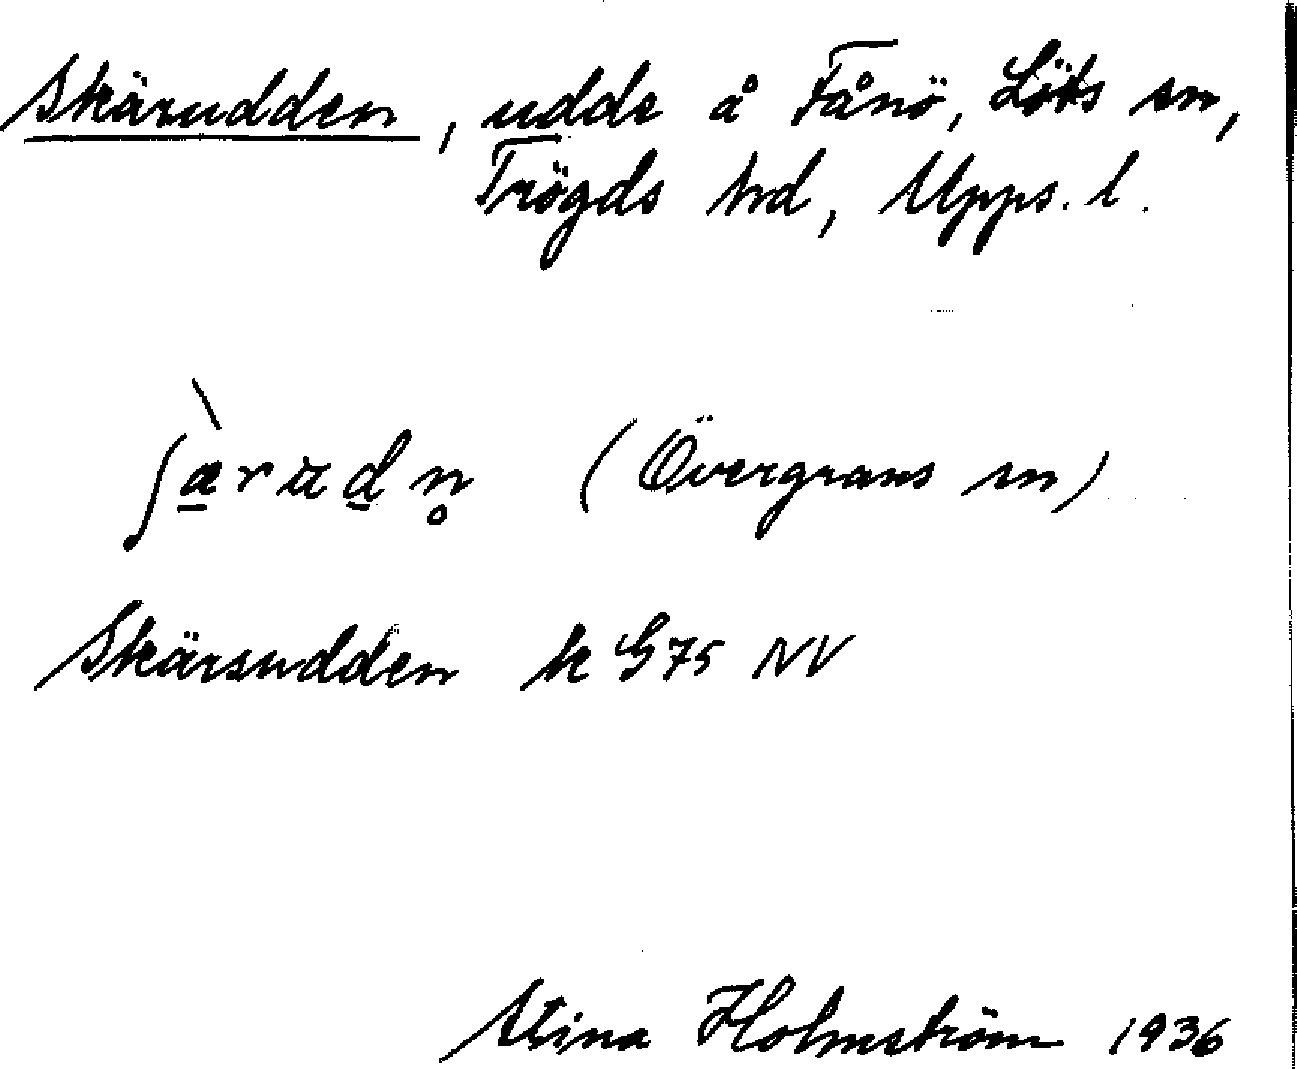 Skärudden, udde å Fånö, Löts sn,
Trögds hd, Upps. l.
(Övergrans sn)
Skärsudden k G75 NV
Stina Holmström 1936